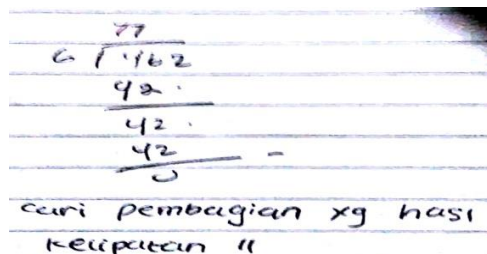 77
6 / 462
42
42
42 -
0
cari pembagian yg hasi
kelipatan 11